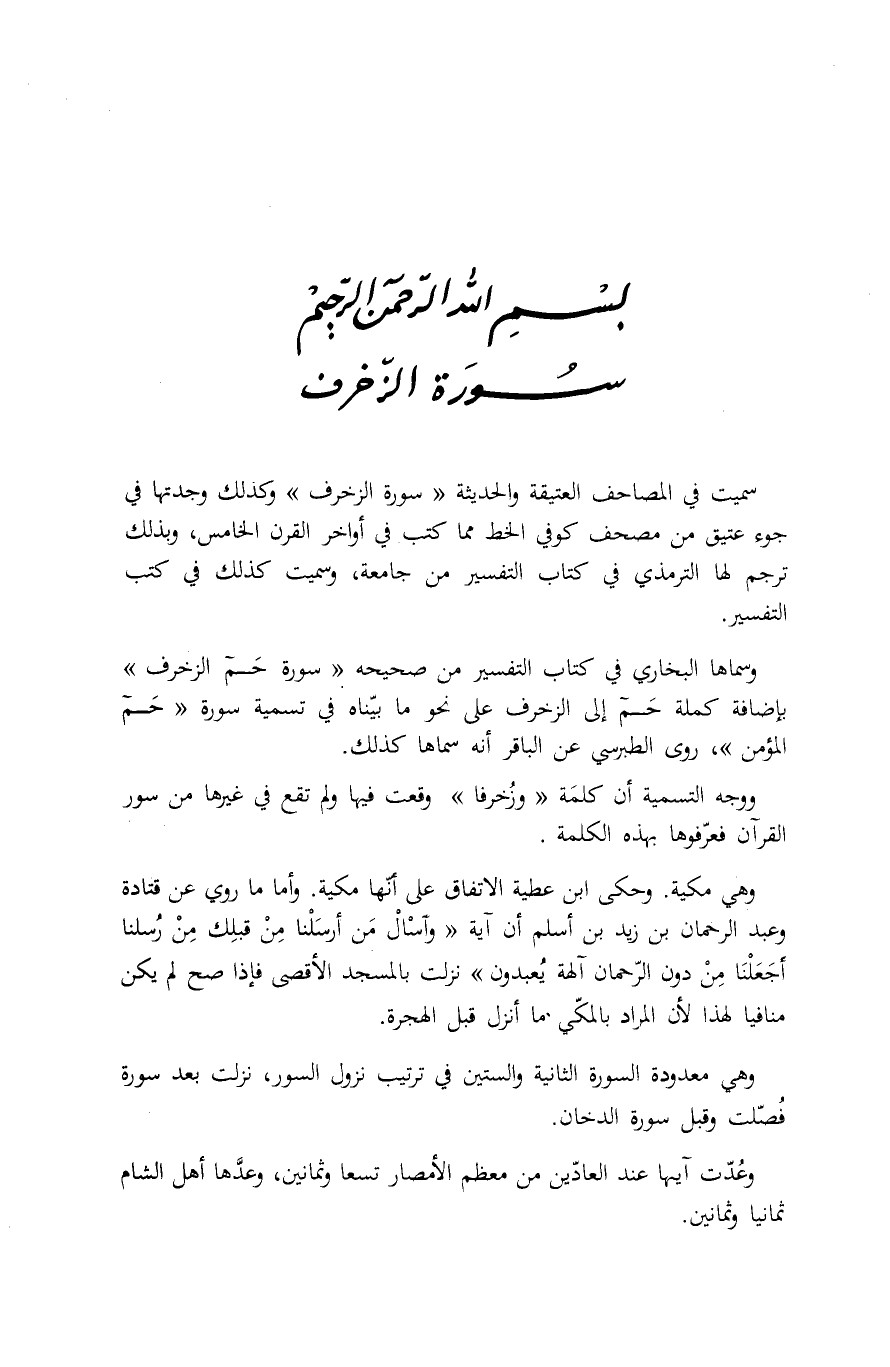 بِسْمِ اللهِ الرَّحْمَنِ الرَّحِيمِ
سُورَة الزّخرف
سميت في المصاحف العتيقة والحديثة « سورة الزخرف » وكذلك وجدتها في
جوء عتيق من مصحف كوفي الخط مما كتب في أواخر القرن الخامس، وبذلك
ترجم لها الترمذي في كتاب التفسير من جامعة، وسميت كذلك في كتب
التفسير.
وسماها البخاري في كتاب التفسير من صحيحه « سورة حَـمّ الزخرف »
بإضافة كملة حَـمّ إلى الزخرف على نحو ما بيّناه في تسمية سورة « حَـمّ
المؤمن »، روى الطبرسي عن الباقر أنه سماها كذلك.
ووجه التسمية أن كلمَة « وزُخرفا » وقعت فيها ولم تقع في غيرها من سور
القرآن فعرّفوها بهذه الكلمة .
وهي مكية. وحكى ابن عطية الاتفاق على أنّها مكية. وأما ما روي عن قتادة
وعبد الرحمان بن زيد بن أسلم أن آية « وآسْألْ مَن أرسَلْنا مِنْ قبلِك مِنْ رُسلنا
أجَعَلْنَا مِنْ دون الرّحمان آلهة يُعبدون » نزلت بالمسجد الأقصى فإذا صح لم يكن
منافيا لهذا لأن المراد بالمكّي ما أنزل قبل الهجرة.
وهي معدودة السورة الثانية والستين في ترتيب نزول السور، نزلت بعد سورة
فُصّلت وقبل سورة الدخان.
وعُدّت آيها عند العادّين من معظم الأمصار تسعا وثمانين، وعدَّها أهل الشام
ثمانيا وثمانين.